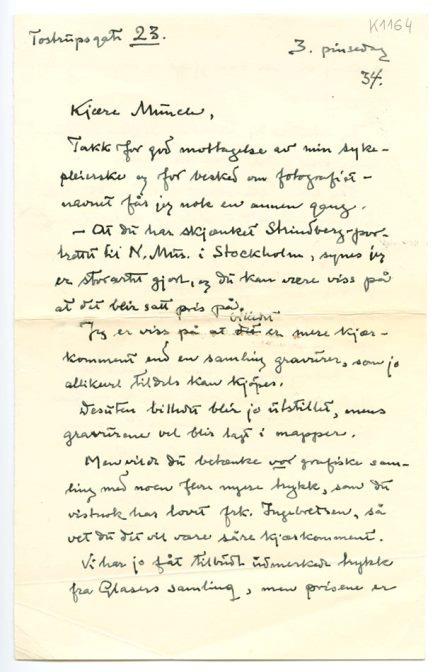 K1164
Tostrupsgatе 23.
3. pinsedag
34.
Kjære Munch,
Takk for god mottagelse av min syke-
pleierske og for besked om fotografiet –
navnet får jeg nok en annen gang.
– At du har skjænket Strindberg-por-
trættet til N. Mus. i Stockholm, synes jeg
er storartet gjort, og du kan være viss på
at det blir satt pris på.
billedet
Jeg er viss på at det er mere kjær-
komment end en samling gravurer, som jo
allikevel tildels kan kjøpes.
Desuten billedet blir jo utstillet, mens
gravurene vel blir lagt i mapper.
Men vilde du betænke vor grafiske sam-
ling med noen flere nyere trykk, som du
vistnok har lovet frk. Ingebretsen, så
vet du det vil være såre kjærkomment.
Vi har jo fåt tilbudt udmerkede trykk
fra Glasers samling, men prisene er